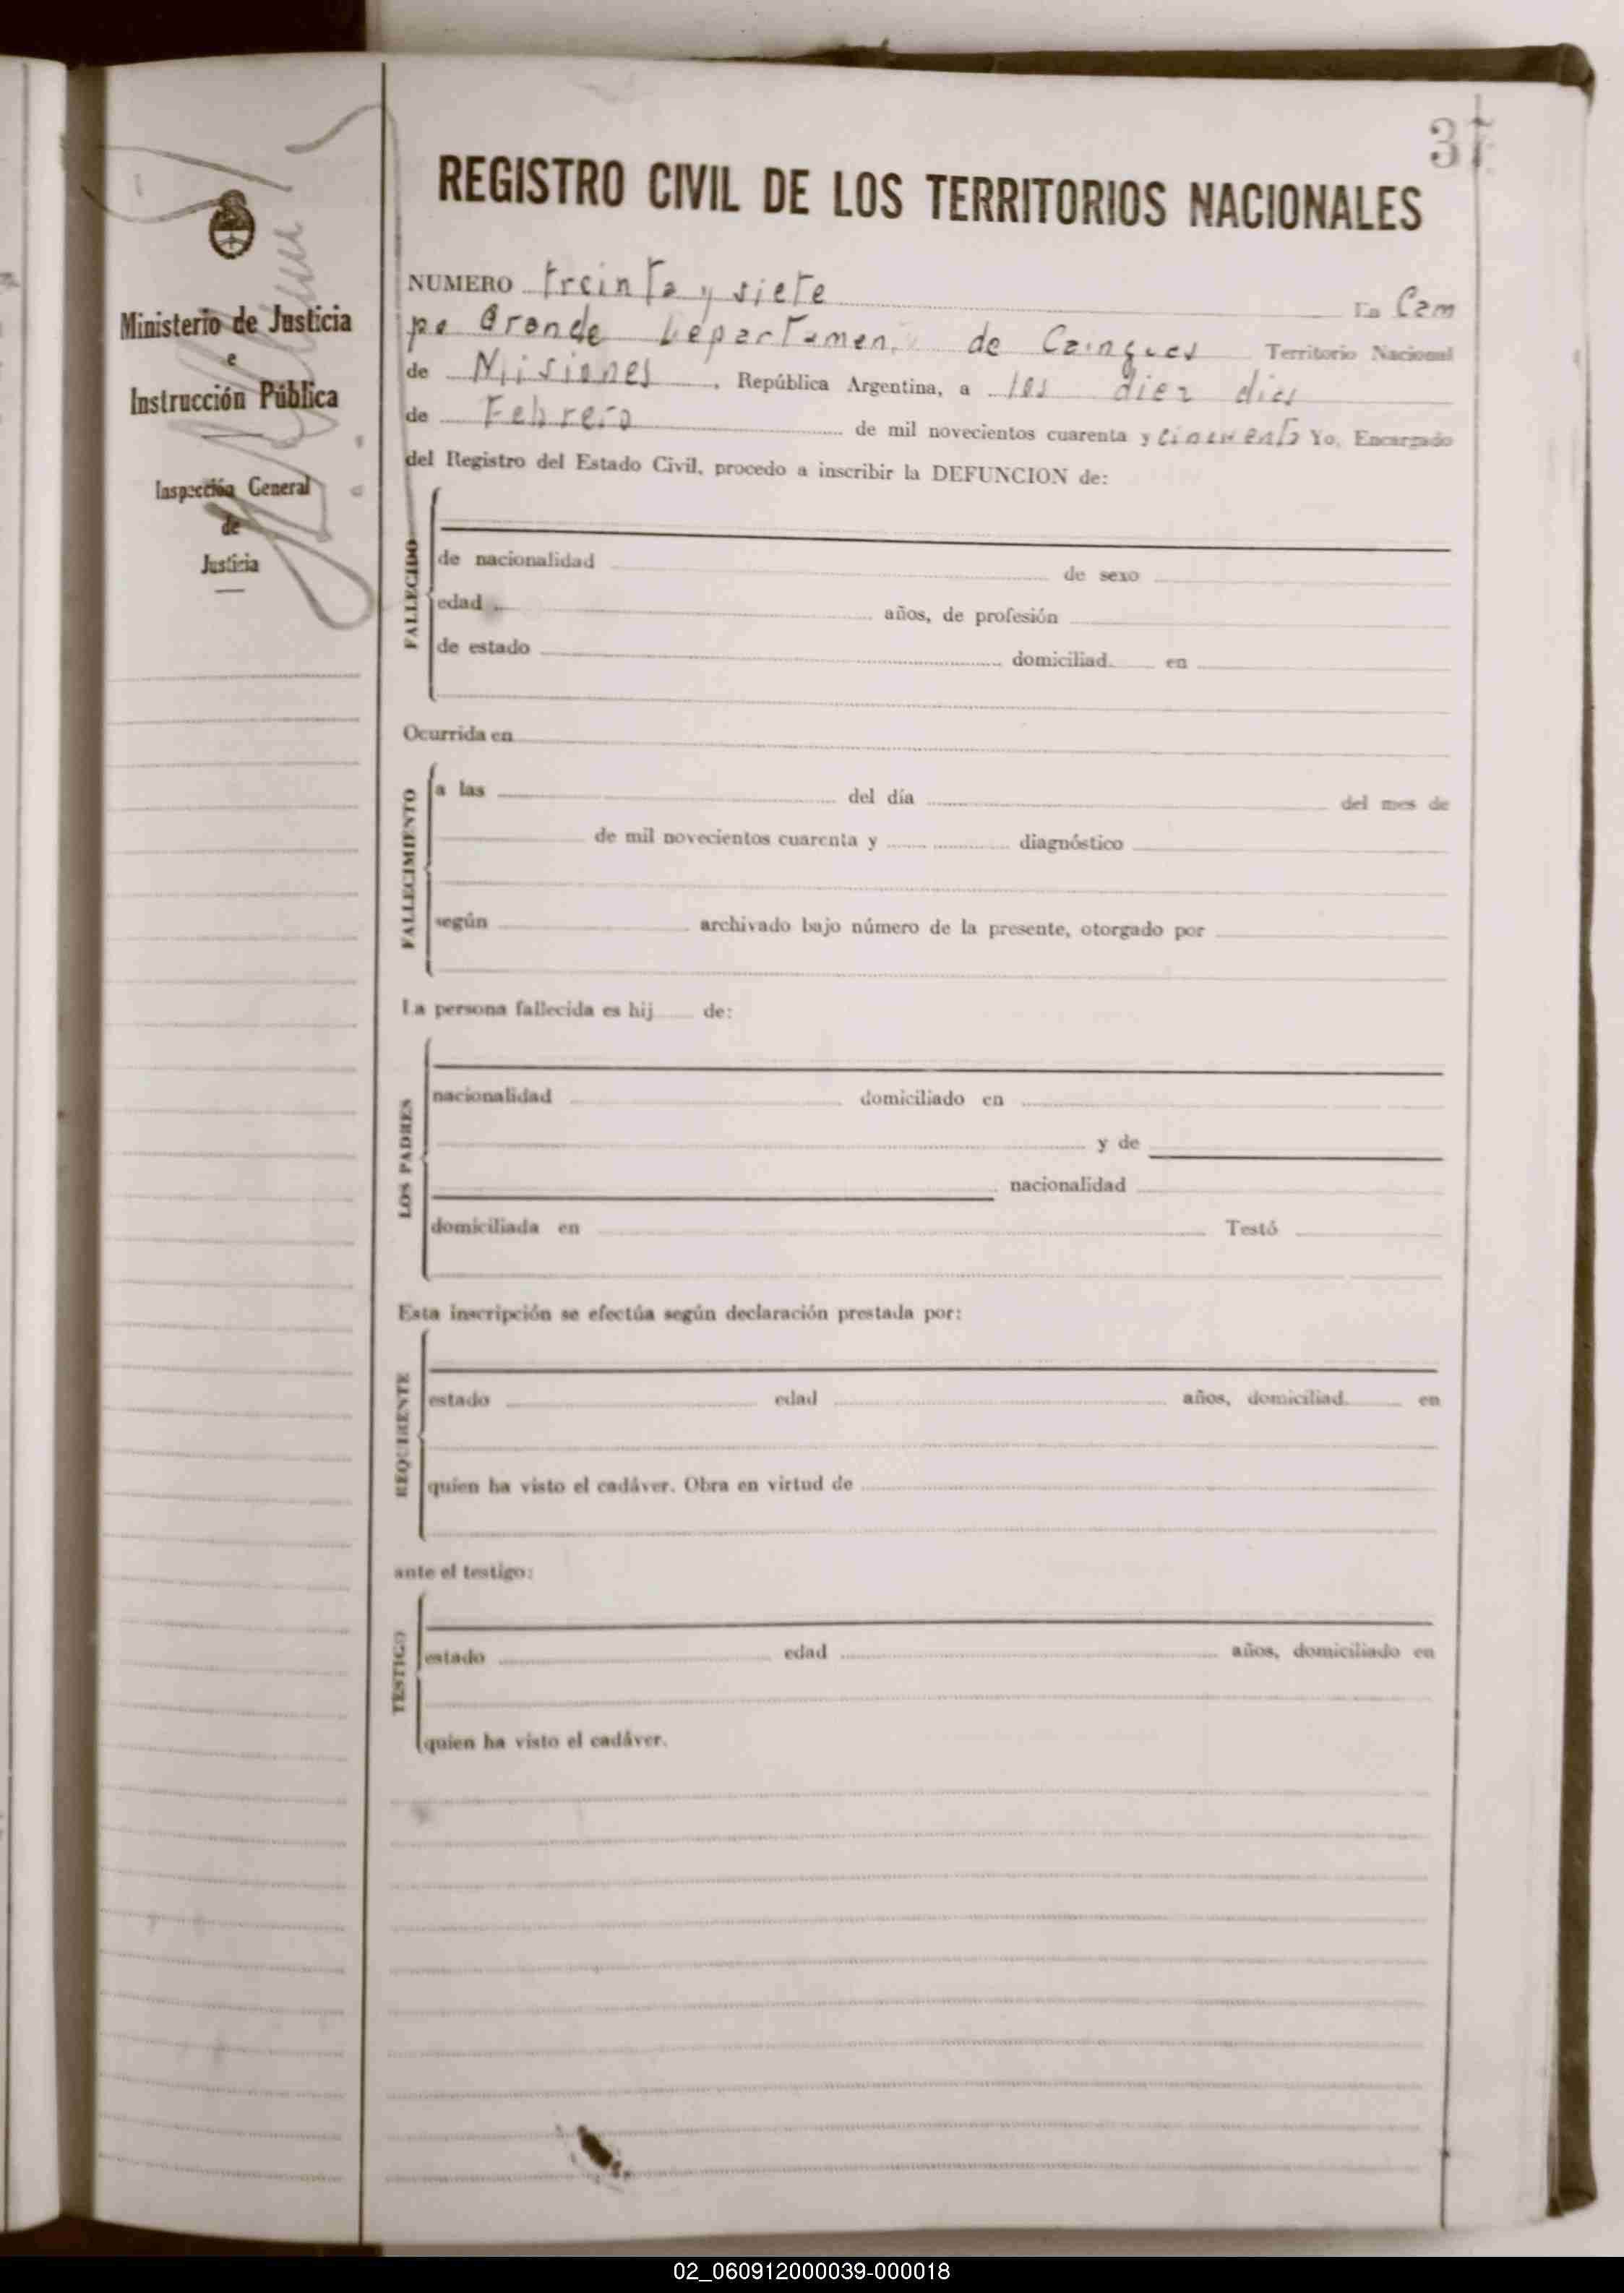 37
REGISTRO CIVIL DE LOS TERRITORIOS NACIONALES
Ministerio de Justicia
e
Instrucción Pública
Inspección General
de
Justicia
NUMERO treinta y siete En Cam
po Grande Departamen. de Caingues Territorio Nacional
de Misiones, República Argentina, a los diez dias
de Febrero de mil novecientos cuarenta y cincuenta Yo, Encargado
del Registro del Estado Civil, procedo a inscribir la DEFUNCION de:
FALLECIDO
de nacionalidad de sexo
edad años, de profesión
de estado domiciliad en
Ocurrida en
FALLECIMIENTO
a las del día del mes de
de mil novecientos cuarenta y diagnóstico
según archivado bajo número de la presente, otorgado por
La persona fallecida es hij de:
LOS PADRES
nacionalidad domiciliado en
y de
nacionalidad
domiciliada en Testó
Esta inscripción se efectúa según declaración prestada por:
REQUIRENTE
estado edad años, domiciliad en
quien ha visto el cadáver. Obra en virtud de
ante el testigo:
TESTIGO
estado edad años, domiciliado en
quien ha visto el cadáver.
02_060912000039-000018